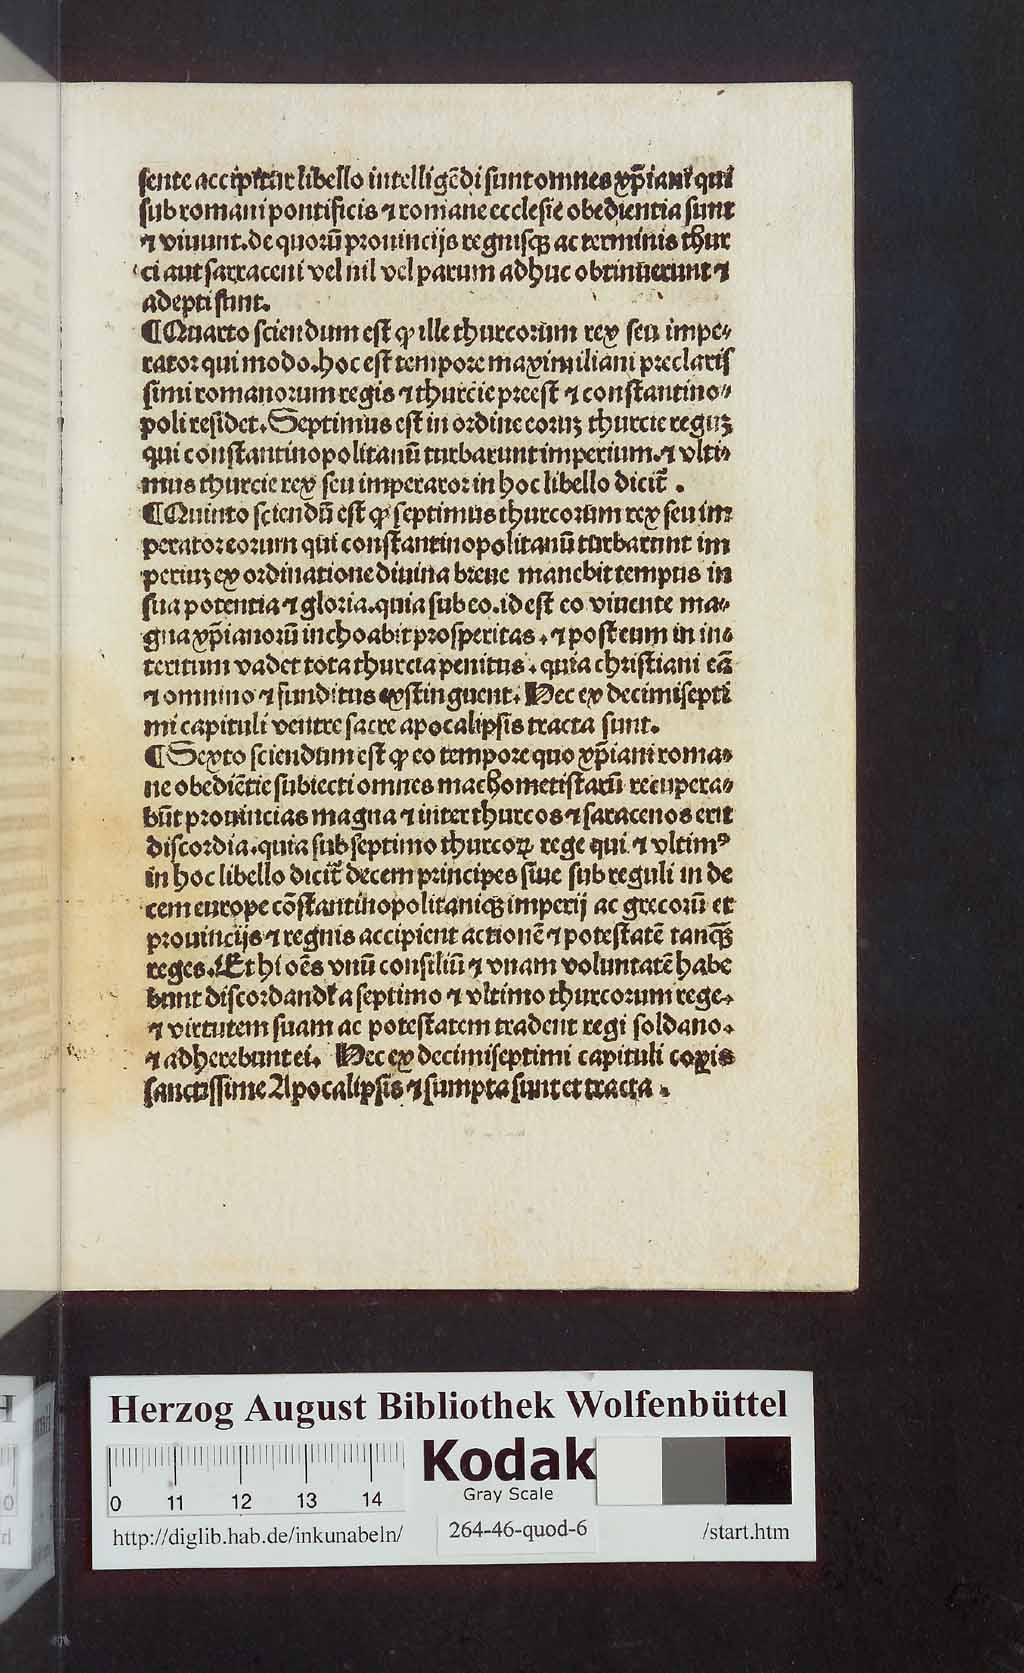 sente accipitur libello intelligēdi sunt omnes xp̄iani qui
sub romani pontificis ⁊ romane ecclesie obedientia sunt
⁊ viuunt. de quorū prouincijs regnisqꝫ ac terminis thur
ci aut sarraceni vel nil vel parum adhuc obtinuerunt ⁊
adepti sunt.
¶ Quarto sciendum est ꝙ ille thurcorum rex seu impe⸗
rator qui modo. hoc est tempore maximiliani preclaris
simi romanorum regis ⁊ thurcie preest ⁊ constantino⸗
poli residet. Septimus est in ordine eoruꝫ thurcie reguꝫ
qui constantinopolitanū turbarunt imperium. ⁊ vlti⸗
mus thurcie rex seu imperator in hoc libello dicit̄ .
¶ Quinto sciendū est ꝙ septimus thurcorum rex seu im
perator eorum qui constantinopolitanū turbarunt im
periuꝫ ex ordinatione diuina breue manebit tempus in
sua potentia ⁊ gloria. quia sub eo. id est eo viuente ma⸗
gna xp̄ianorū inchoabit prosperitas . ⁊ post eum in in⸗
teritum vadet tota thurcia penitus . quia christiani eā
⁊ omnino ⁊ funditus exstinguent. Hec ex decimisepti
mi capituli ventre sacre apocalipsis tracta sunt.
¶ Sexto sciendum est ꝙ eo tempore quo xp̄iani roma⸗
ne obediētie subiecti omnes machometistarū recupera⸗
būt prouincias magna ⁊ inter thurcos ⁊ saracenos erit
discordia. quia sub septimo thurcoꝝ rege qui ⁊ vltimꝰ
in hoc libello dicit̄ decem principes siue sub reguli in de
cem europe cōstantinopolitaniqꝫ imperij ac grecorū et
prouincijs ⁊ regnis accipient actionē ⁊ potestatē tanqꝫ̄
reges. Et hi oēs vnū consiliū ⁊ vnam voluntatē habe
bunt discordandi a septimo ⁊ vltimo thurcorum rege.
⁊ virtutem suam ac potestatem tradent regi soldano.
⁊ adherebunt ei. Hec ex decimiseptimi capituli copis
sanctissime Apocalipsis ⁊ sumpta sunt et tracta .
Herzog August Bibliothek Wolfenbüttel
0 11 12 13 14
Kodak
Gray Scale
http://diglib.hab.de/inkunabeln/
264-46-quod-6
/start.htm